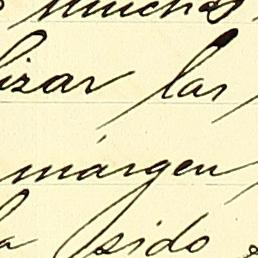 muchas
izar las
márgen
la sido